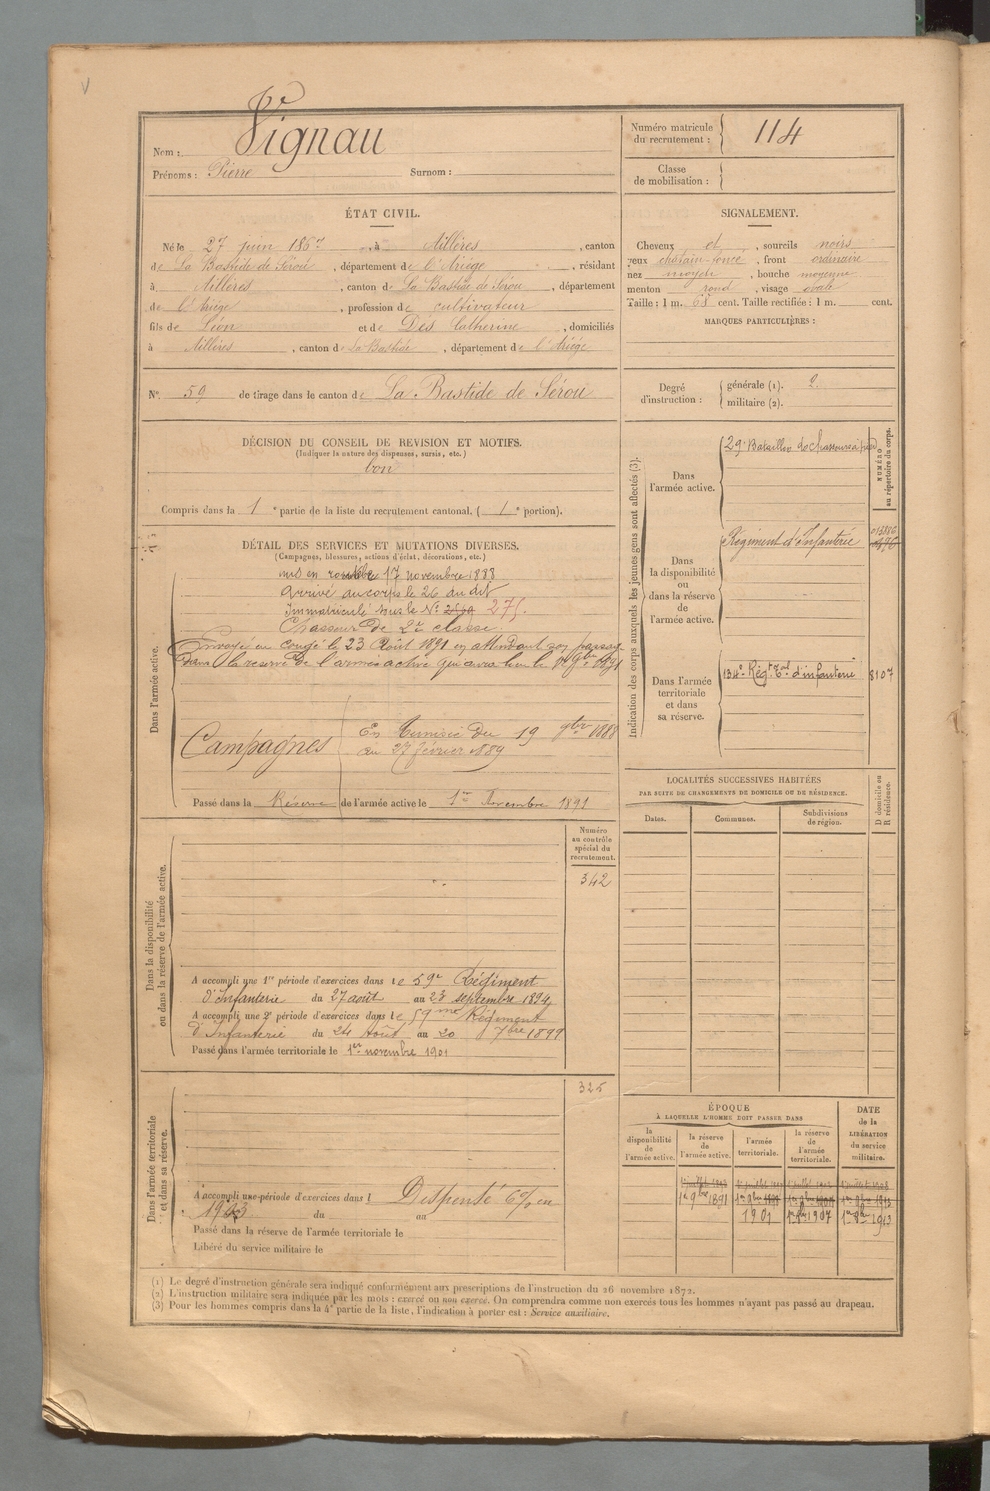 Nom : Vignau
Prénoms : Pierre Surnom :
Numéro matricule du recrutement : 114
Classe de mobilisation :
ÉTAT CIVIL.
Né le 27 juin 1867, à Aillères, canton
de La Bastide de Sérou, département de l'Ariège, résidant
à Aillères, canton de La Bastide de Sérou, département
de l'Ariège, profession de cultivateur
fils de Léon et de Des Catherine, domiciliés
à Aillères, canton de La Bastide, département de l'Ariège
N° 59 de tirage dans le canton de La Bastide de Sérou
SIGNALEMENT.
Cheveux et, sourcils noirs
yeux châtain foncé, front ordinaire
nez moyen, bouche moyenne
menton rond, visage ovale
Taille : 1 m. 68 cent. Taille rectifiée : 1 m. cent.
MARQUES PARTICULIÈRES :
Degré d'instruction : générale (1). 2
militaire (2).
DÉCISION DU CONSEIL DE REVISION ET MOTIFS.
(Indiquer la nature des dispenses, sursis, etc.)
bon
Compris dans la 1e partie de la liste du recrutement cantonal, (1e portion).
DÉTAIL DES SERVICES ET MUTATIONS DIVERSES.
(Campagnes, blessures, actions d'éclat, décorations, etc.)
Dans l'armée active.
mis en route le 17 novembre 1888
Arrivé au corps le 26 au dit
Immatriculé sous le N° 275.
Chasseur de 2e classe.
Envoyé en congé le 23 Août 1891 en attendant son passage
dans la réserve de l'armée active qui aura lieu le 1er 9bre 1891
Campagnes En Tunisie du 19 9bre 1888
au 27 février 1889
Passé dans la Réserve de l'armée active le 1er Novembre 1891
Indication des corps auxquels les jeunes gens sont affectés (3).
NUMÉRO au répertoire du corps.
Dans l'armée active.
29e Bataillon de chasseurs à pied
Dans la disponibilité ou dans la réserve de l'armée active.
Régiment d'Infanterie
Dans l'armée territoriale et dans sa réserve.
134e Régt Tal d'infanterie 8107
LOCALITÉS SUCCESSIVES HABITÉES
PAR SUITE DE CHANGEMENTS DE DOMICILE OU DE RÉSIDENCE.
Dates. Communes. Subdivisions de région. D domicile ou R résidence.
Dans la disponibilité ou dans la réserve de l'armée active.
Numéro au contrôle spécial du recrutement.
342
A accompli une 1re période d'exercices dans le 59e Régiment
d'Infanterie du 27 août au 23 septembre 1894
A accompli une 2e période d'exercices dans le 59me Régiment
d'Infanterie du 24 Août au 20 7bre 1899
Passé dans l'armée territoriale le 1er novembre 1901
Dans l'armée territoriale et dans sa réserve.
325
A accompli une période d'exercices dans l Dispensé 6% en
1903 du au
Passé dans la réserve de l'armée territoriale le
Libéré du service militaire le
ÉPOQUE
À LAQUELLE L'HOMME DOIT PASSER DANS
la disponibilité de l'armée active. la réserve de l'armée active. l'armée territoriale. la réserve de l'armée territoriale.
DATE de la LIBÉRATION du service militaire.
1er 9bre 1891
1901 1907 1913
(1) Le degré d'instruction générale sera indiqué conformément aux prescriptions de l'instruction du 26 novembre 1872.
(2) L'instruction militaire sera indiquée par les mots : exercé ou non exercé. On comprendra comme non exercés tous les hommes n'ayant pas passé au drapeau.
(3) Pour les hommes compris dans la 4e partie de la liste, l'indication à porter est : Service auxiliaire.